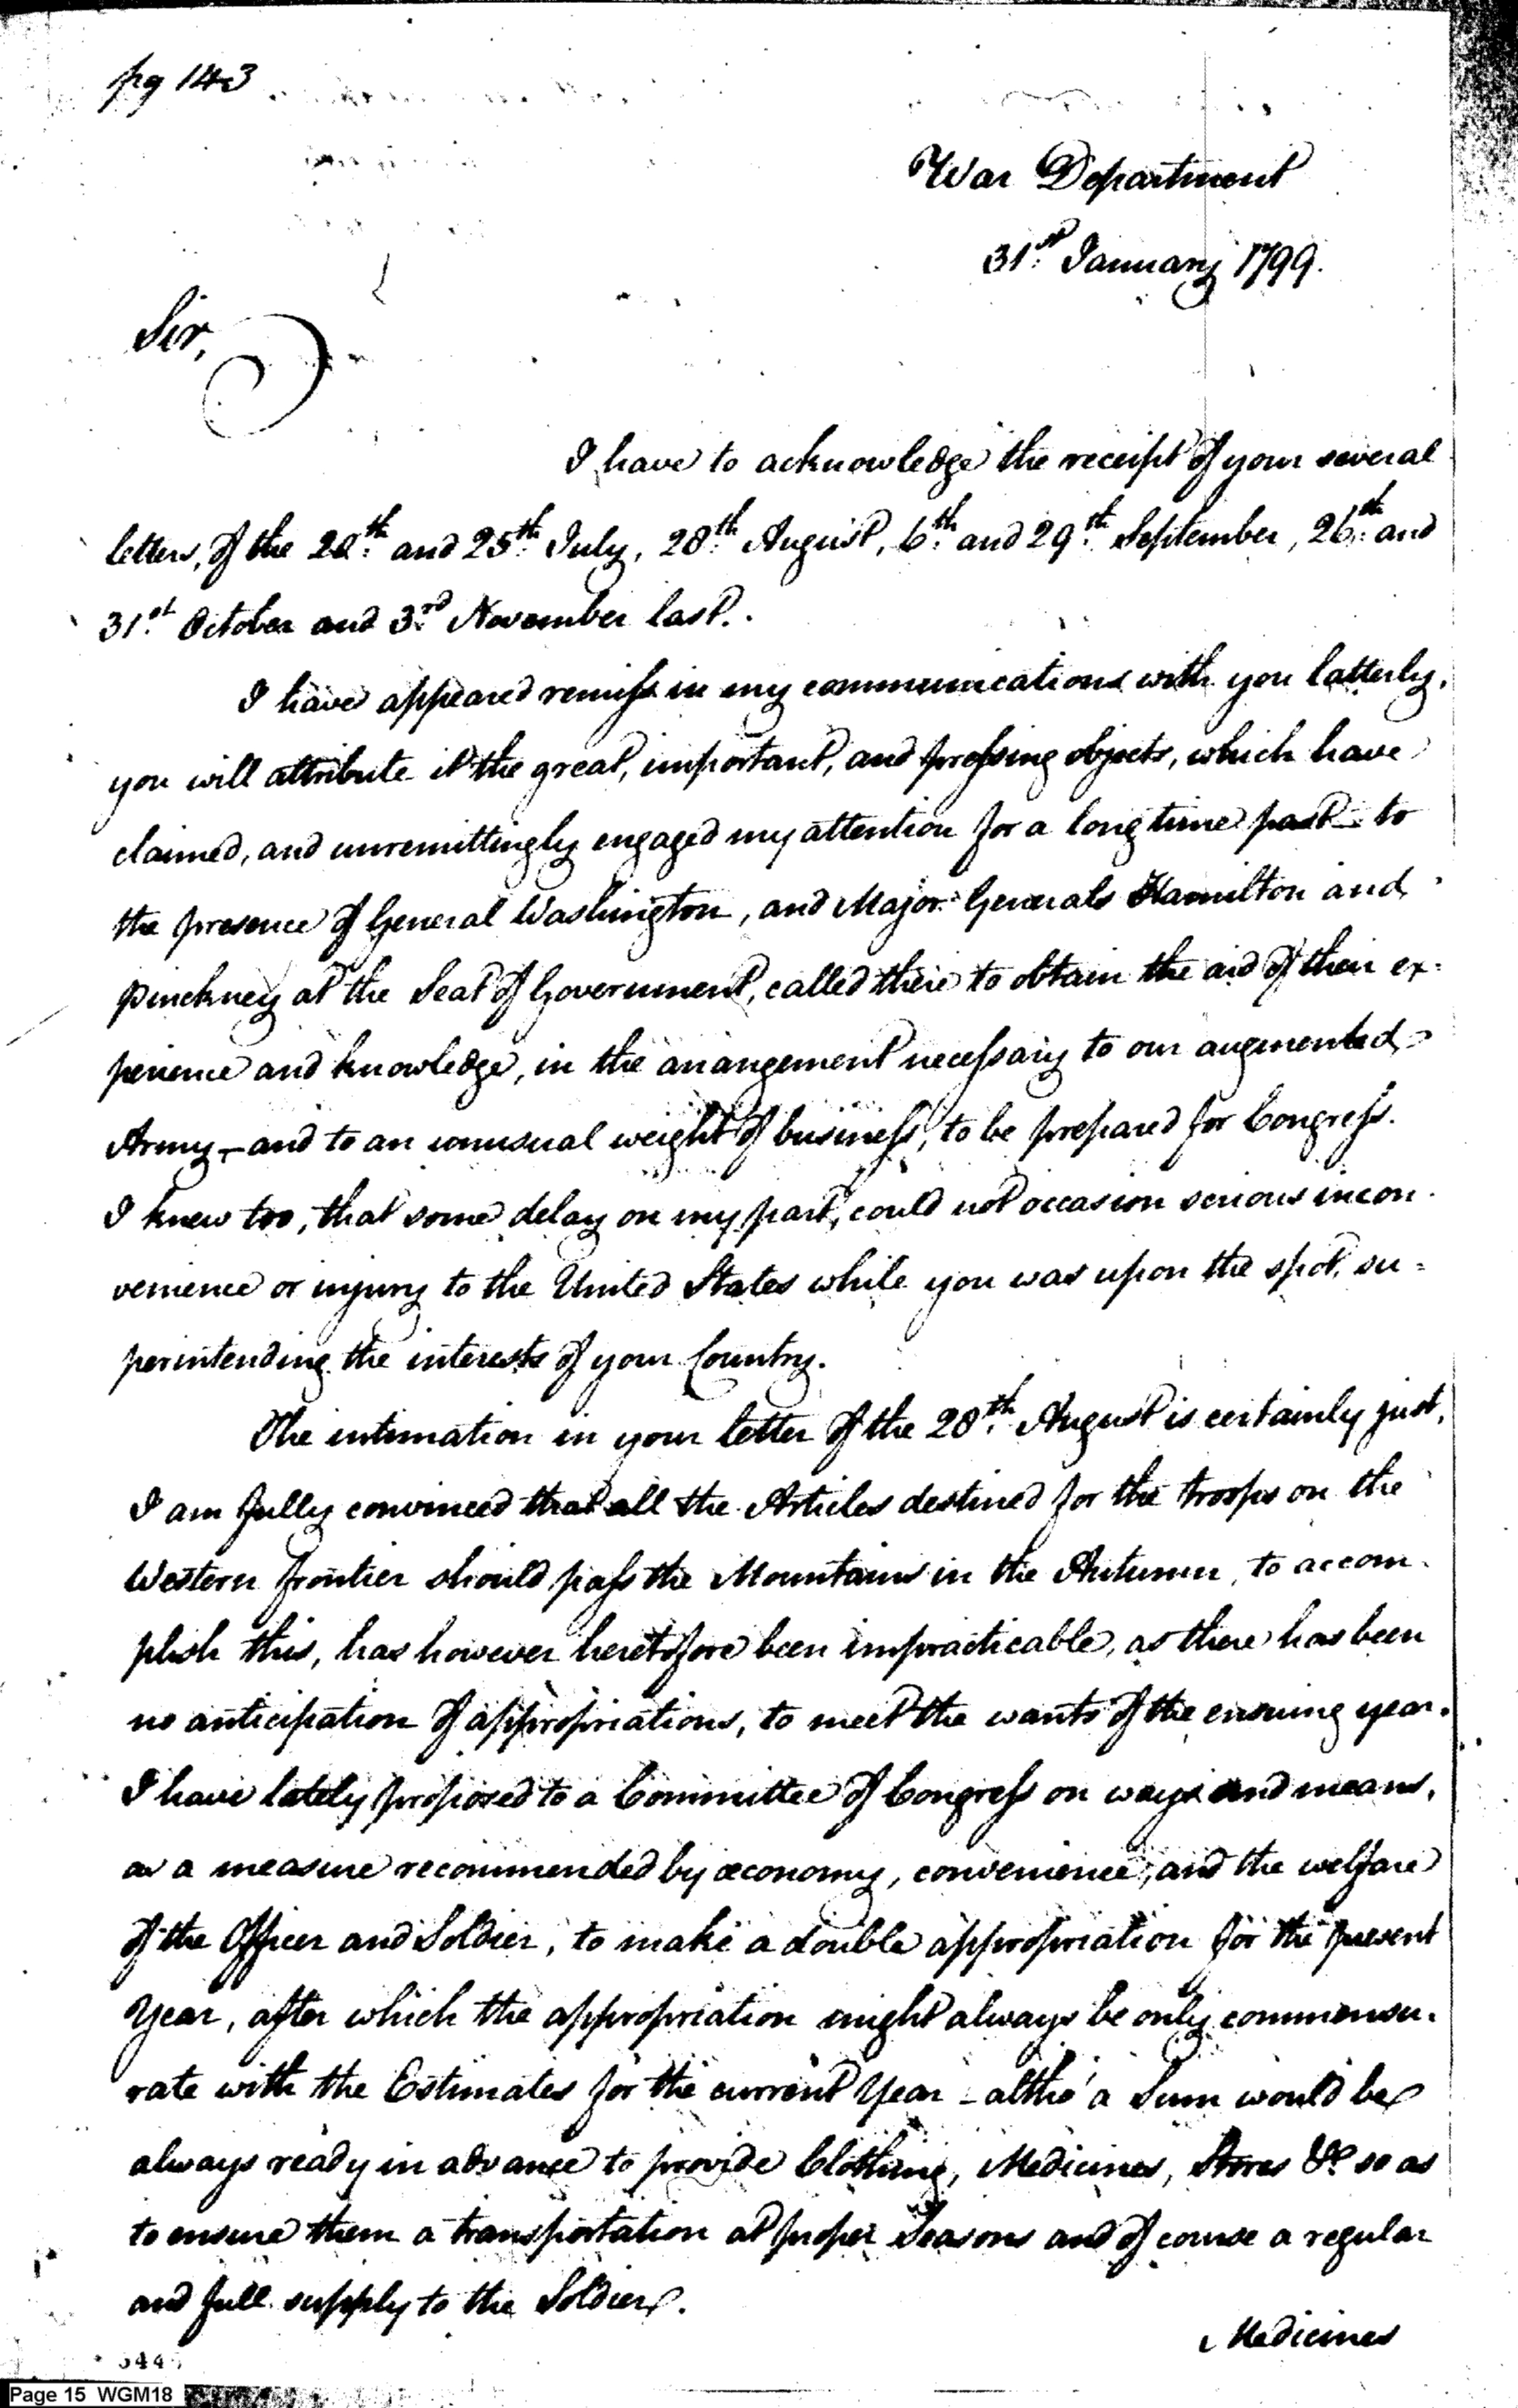 pg 143
War Department
31st January 1799.
Sir,
I have to acknowledge the receipt of your several
letters, of the 20th and 25th July, 28th August, 6th and 29th September, 26th and
31st October and 3rd November last.
I have appeared remiss in my communications with you latterly,
you will attribute it the great, important, and pressing objects, which have
claimed, and unremittingly engaged my attention for a long time past - to
the presence of General Washington, and Major Generals Hamilton and
Pinckney at the Seat of Government, called there to obtain the aid of their ex=
perience and knowledge, in the arrangement necessary to our augmented
Army - and to an unusual weight of business, to be prepared for Congress.
I knew too, that some delay on my part, could not occasion serious incon-
venience or injury to the United States while you was upon the spot, su=
perintending the interests of your Country.
The intimation in your letter of the 28th August is certainly just,
I am fully convinced that all the Articles destined for the troops on the
Western frontier should pass the Mountains in the Autumn, to accom-
plish this, has however heretofore been impracticable, as there has been
no anticipation of appropriations, to meet the wants of the ensuing year.
I have lately proposed to a Committee of Congress on ways and means,
as a measure recommended by œconomy, convenience, and the welfare
of the Officer and Soldier, to make a double appropriation for the present
Year, after which the appropriation might always be only commensu-
rate with the Estimates for the current Year - altho' a Sum would be
always ready in advance to provide Clothing, Medicines, Stores &c so as
to ensure them a transportation at proper Seasons and of course a regular
and full supply to the Soldier.
Medicines
Page 15 WGM18